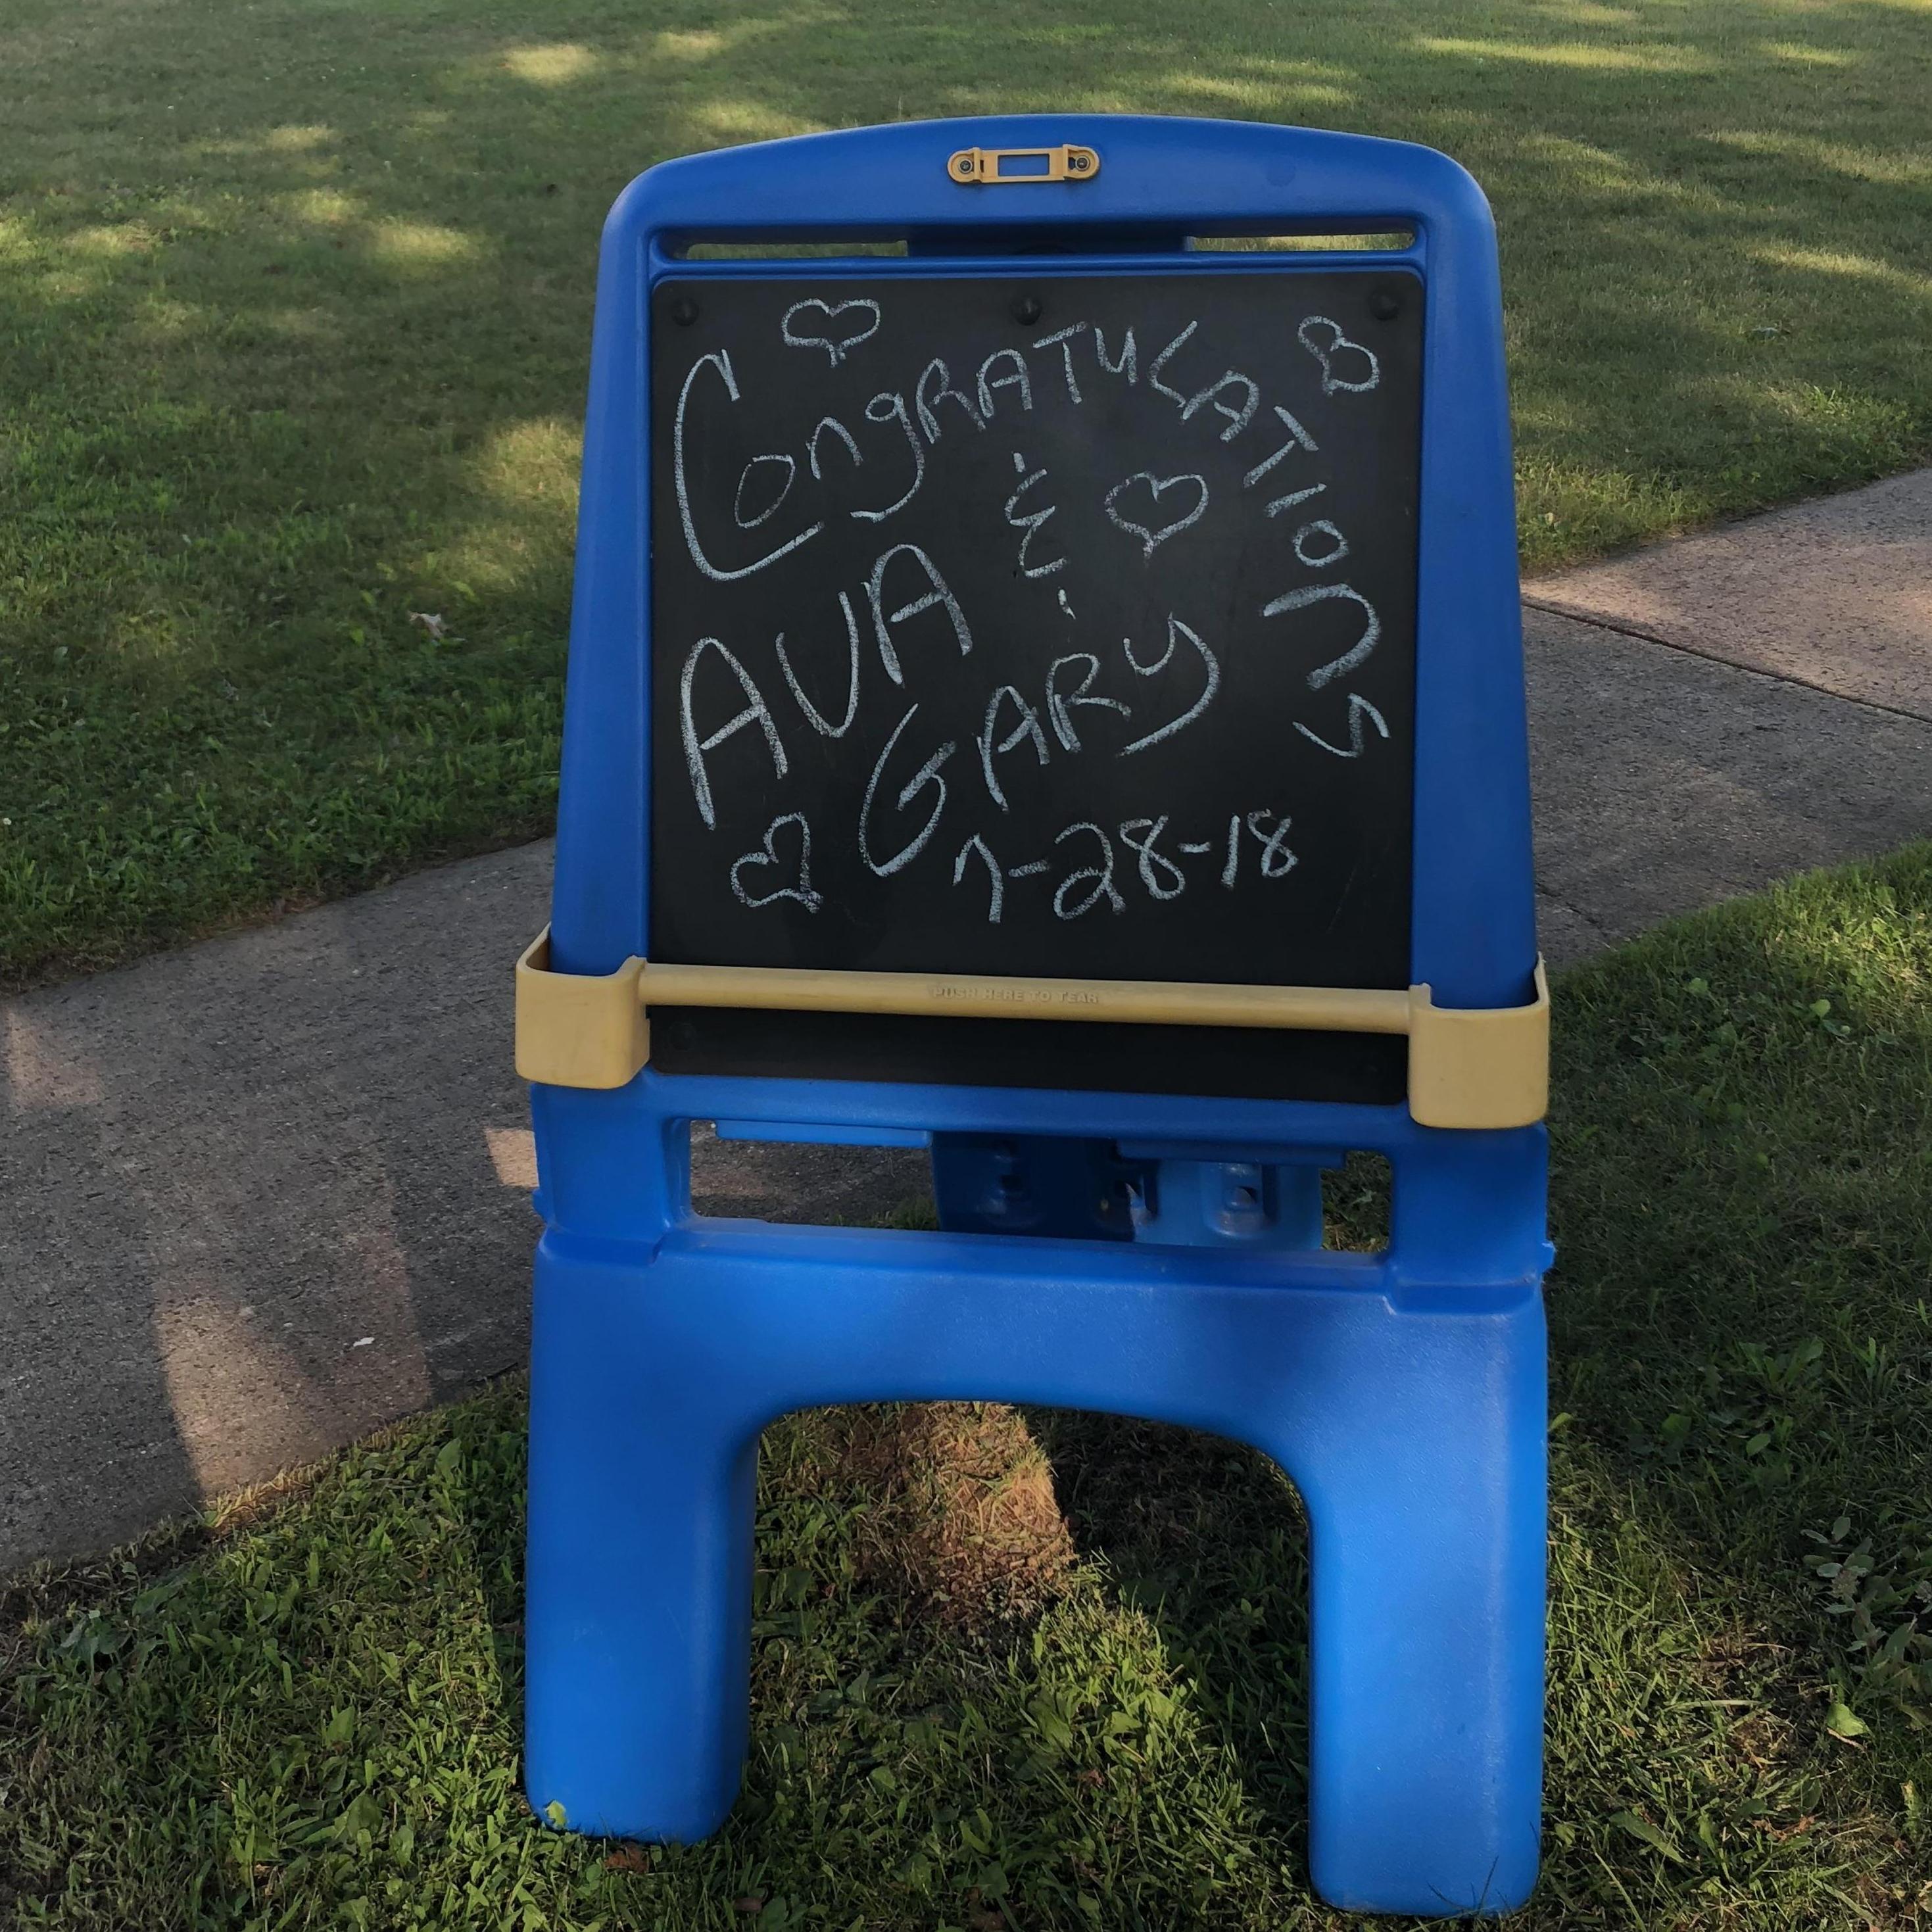 CongRATULATIONS
AVA &
GARY
7-28-18
PUSH HERE TO TEAR